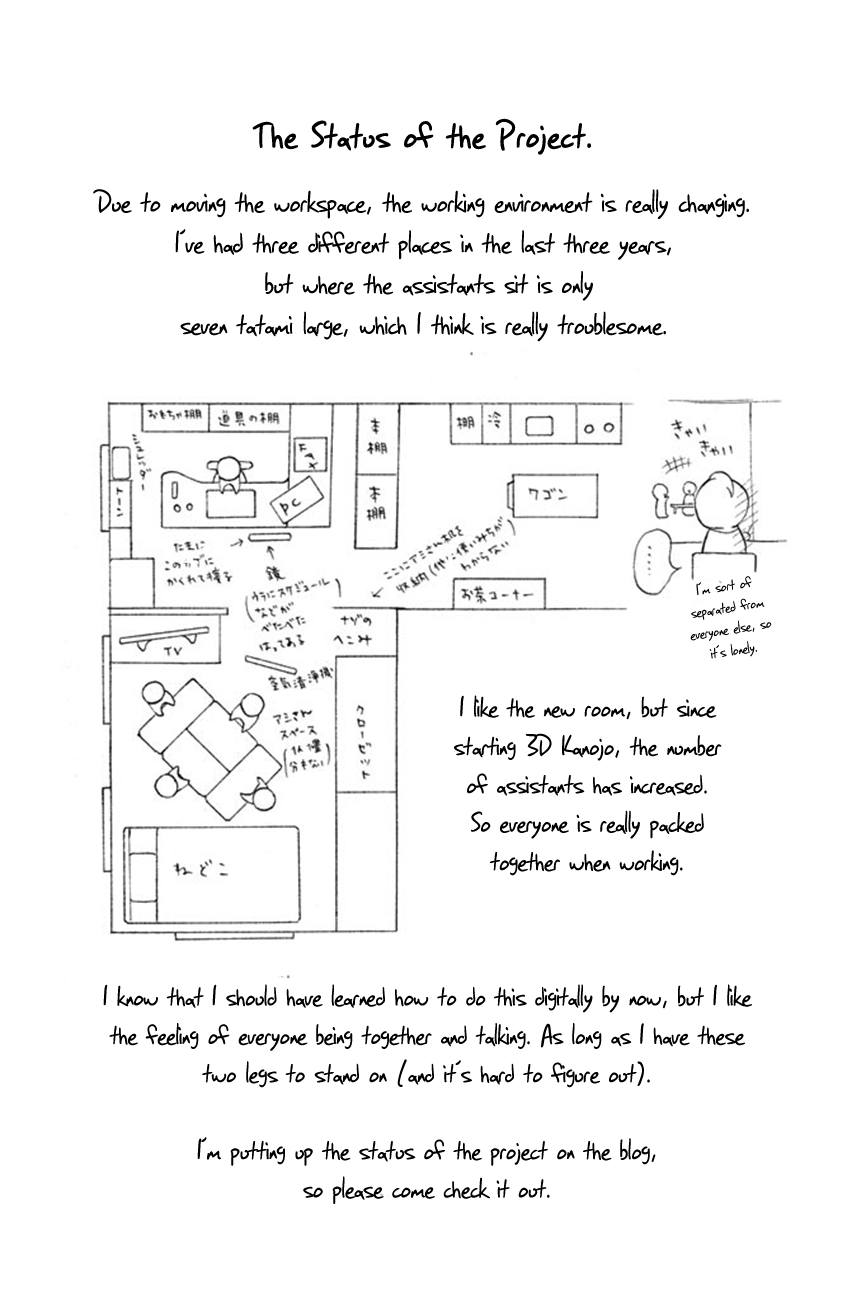 The Status of the Project.
Due to moving the workspace, the working environment is really changing.
I've had three different places in the last three years,
but where the assistants sit is only
seven tatami large, which I think is really troublesome.
おもちゃ棚
道具の棚
本棚
本棚
棚
冷
FAX
PC
ワゴン
きゃい
きゃい
たまに
このップに
かくれて寝る
鏡
(うらにスケジュール
などが
べたべた
はってある)
ここにアミさん机を
収納(他に使いみちが
わからない)
お茶コーナー
ナゾの
へこみ
......
I'm sort of
separated from
everyone else, so
it's lonely.
TV
空気清浄機
アミさん
スペース
クローゼット
ねどこ
I like the new room, but since
starting 3D Kanojo, the number
of assistants has increased.
So everyone is really packed
together when working.
I know that I should have learned how to do this digitally by now, but I like
the feeling of everyone being together and talking. As long as I have these
two legs to stand on (and it's hard to figure out).
I'm putting up the status of the project on the blog,
so please come check it out.